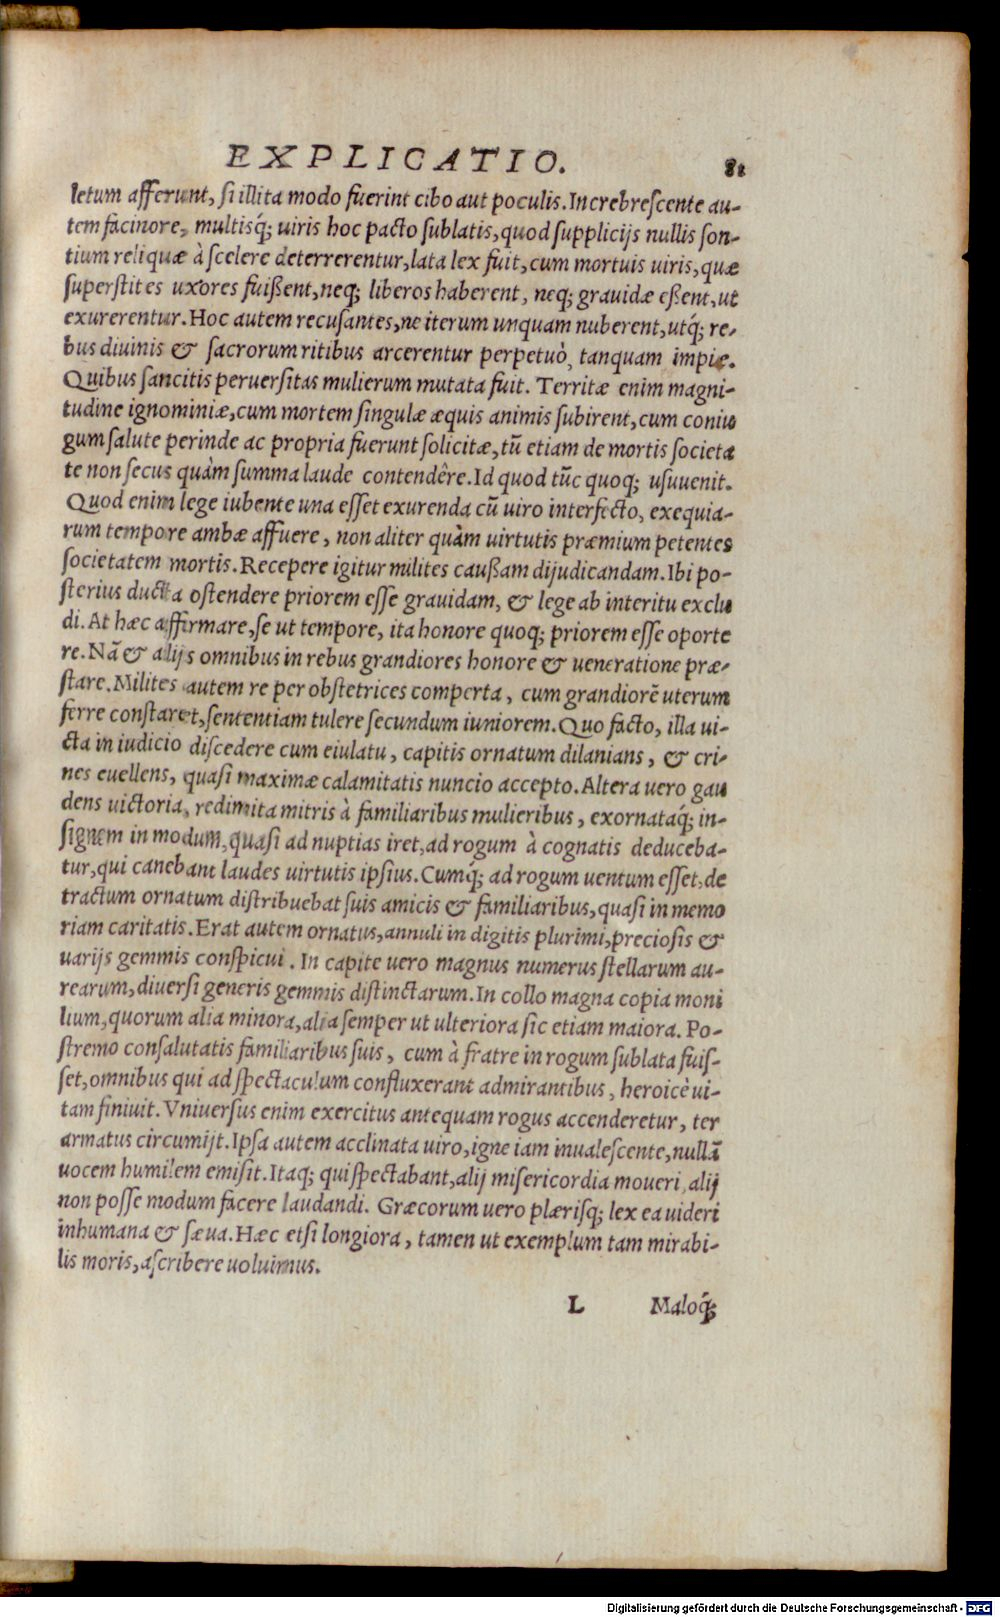 EXPLICATIO. 81
letum afferunt, si illita modo fuerint cibo aut poculis. Increbrescente au-
tem facinore, multisq́; uiris hoc pacto sublatis, quod supplicijs nullis son-
tium reliquæ à scelere deterrerentur, lata lex fuit, cum mortuis uiris, quæ
superstites uxores fuißent, neq; liberos haberent, neq; grauidæ eßent, ut
exurerentur. Hoc autem recusantes, ne iterum unquam nuberent, utq́; re-
bus diuinis & sacrorum ritibus arcerentur perpetuò, tanquam impiæ.
Quibus sancitis peruersitas mulierum mutata fuit. Territæ enim magni-
tudine ignominiæ, cum mortem singulæ æquis animis subirent, cum coniu
gum salute perinde ac propria fuerunt solicitæ, tū etiam de mortis societa
te non secus quàm summa laude contendêre. Id quod tūc quoq; usuuenit.
Quod enim lege iubente una esset exurenda cū uiro interfecto, exequia-
rum tempore ambæ affuere, non aliter quàm uirtutis præmium petentes
societatem mortis. Recepere igitur milites caußam dijudicandam. Ibi po-
sterius ducta ostendere priorem esse grauidam, & lege ab interitu exclu
di. At hæc affirmare, se ut tempore, ita honore quoq; priorem esse oporte
re. Nā & alijs omnibus in rebus grandiores honore & ueneratione præ-
stare. Milites autem re per obstetrices comperta, cum grandiorē uterum
ferre constaret, sententiam tulere secundum iuniorem. Quo facto, illa ui-
cta in iudicio discedere cum eiulatu, capitis ornatum dilanians, & cri-
nes euellens, quasi maximæ calamitatis nuncio accepto. Altera uero gau
dens uictoria, redimita mitris à familiaribus mulieribus, exornataq́; in-
signem in modum, quasi ad nuptias iret, ad rogum à cognatis deduceba-
tur, qui canebant laudes uirtutis ipsius. Cumq́; ad rogum uentum esset, de
tractum ornatum distribuebat suis amicis & familiaribus, quasi in memo
riam caritatis. Erat autem ornatus, annuli in digitis plurimi, preciosis &
uarijs gemmis conspicui. In capite uero magnus numerus stellarum au-
rearum, diuersi generis gemmis distinctarum. In collo magna copia moni
lium, quorum alia minora, alia semper ut ulteriora sic etiam maiora. Po-
stremo consalutatis familiaribus suis, cum à fratre in rogum sublata fuis-
set, omnibus qui ad spectaculum confluxerant admirantibus, heroicè ui-
tam finiuit. Vniuersus enim exercitus antequam rogus accenderetur, ter
armatus circumijt. Ipsa autem acclinata uiro, igne iam inualescente, nullā
uocem humilem emisit. Itaq; qui spectabant, alij misericordia moueri, alij
non posse modum facere laudandi. Græcorum uero plærisq; lex ea uideri
inhumana & sæua. Hæc etsi longiora, tamen ut exemplum tam mirabi-
lis moris, ascribere uoluimus.
L Maloq́;
Digitalisierung gefördert durch die Deutsche Forschungsgemeinschaft - DFG